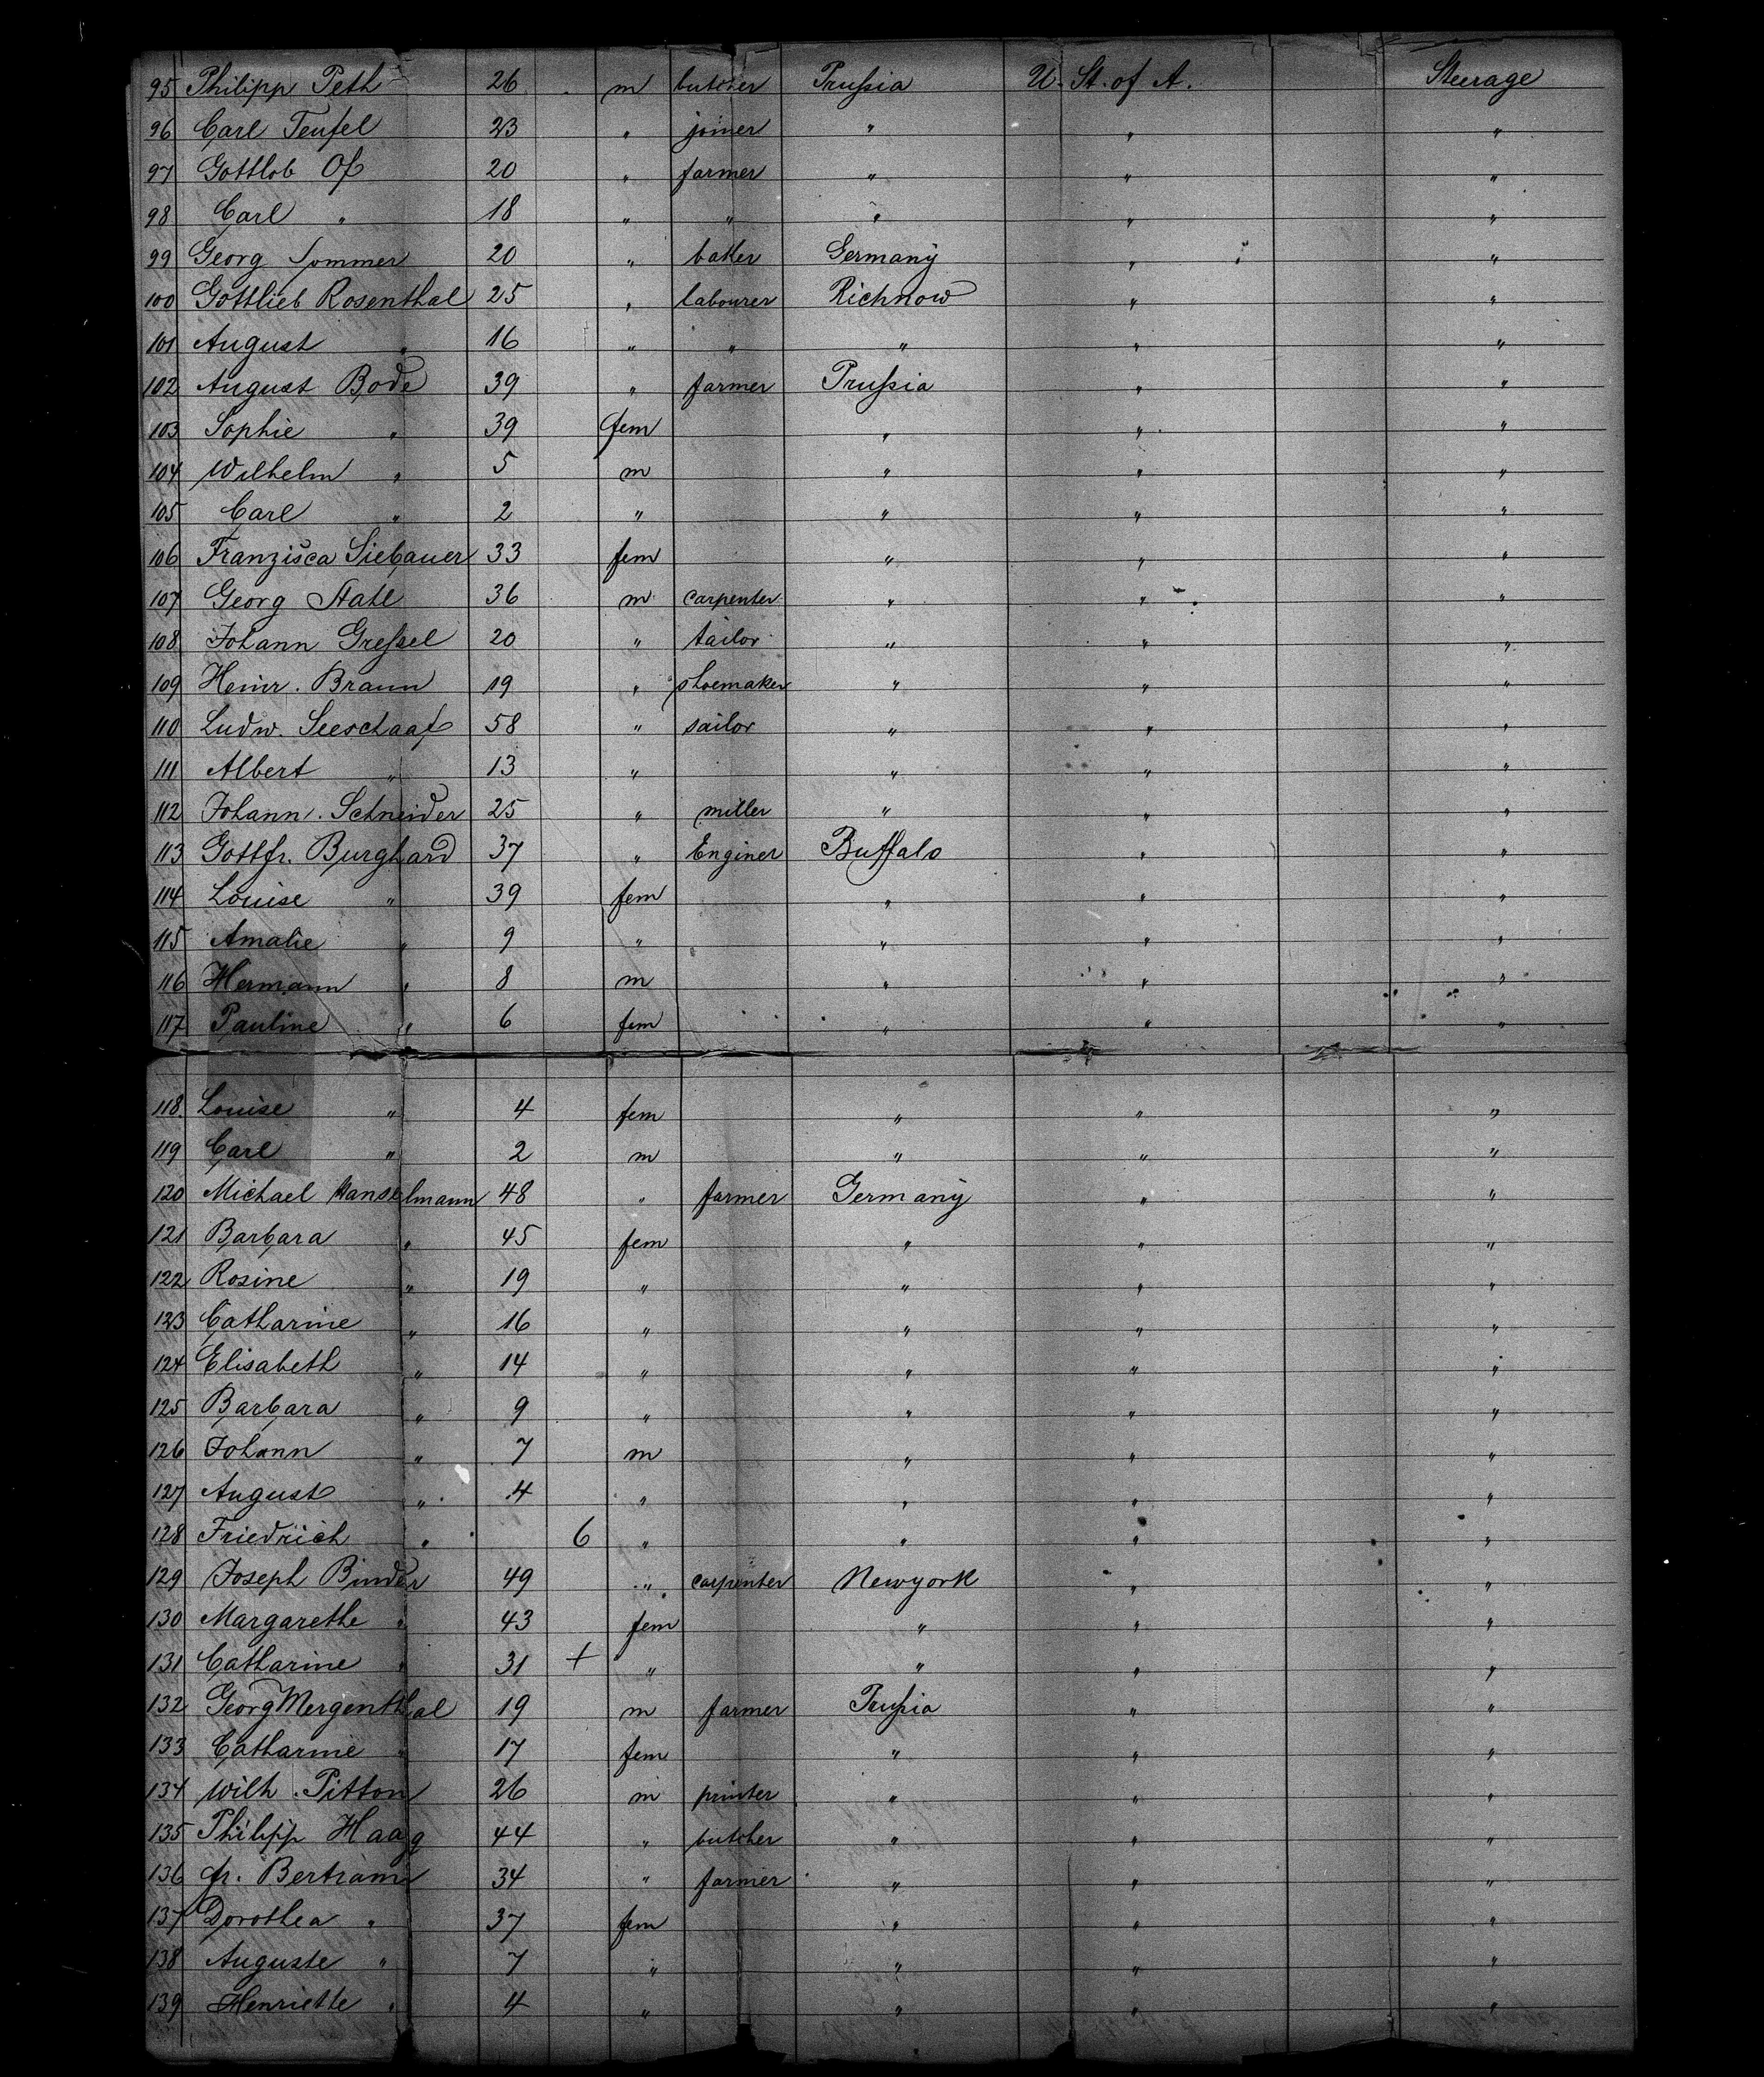 95 Philipp Peth 26 m butcher Prußia U. St. of A. Steerage
96 Carl Teufel 23 " joiner " " "
97 Gottlob Oß 20 " farmer " " "
98 Carl " 18 " " " " "
99 Georg Sommer 20 " baker Germany " "
100 Gottlieb Rosenthal 25 " labourer Richnow " "
101 August " 16 " " " " "
102 August Bode 39 " farmer Prußia " "
103 Sophie " 39 fem " " "
104 Wilhelm " 5 m " " "
105 Carl " 2 " " " "
106 Franzisca Siebauer 33 fem " " "
107 Georg Stahl 36 m carpenter " " "
108 Johann Greßel 20 " tailor " " "
109 Heinr. Braun 19 " shoemaker " " "
110 Ludw. Seeschaaf 58 " sailor " " "
111 Albert " 13 " " " "
112 Johann. Schneider 25 " miller " " "
113 Gottfr. Burghard 37 " Enginer Buffalo " "
114 Louise " 39 fem " " "
115 Amalie " 9 " " " "
116 Hermann " 8 m " " "
117 Pauline " 6 fem " " "
118. Louise " 4 fem " " "
119 Carl " 2 m " " "
120 Michael Hanselmann 48 " farmer Germany " "
121 Barbara " 45 fem " " "
122 Rosine " 19 " " " "
123 Catharine " 16 " " " "
124 Elisabeth " 14 " " " "
125 Barbara " 9 " " " "
126 Johann " 7 m " " "
127 August " 4 " " " "
128 Friedrich " 6 " " " "
129 Joseph Binder 49 " carpenter Newyork " "
130 Margarethe " 43 fem " " "
131 Catharine " 31 + " " " "
132 Georg Mergenthal 19 m farmer Prußia " "
133 Catharine " 17 fem " " "
134 Wilh. Pitton 26 m printer " " "
135 Philipp Haag 44 " butcher " " "
136 Fr. Bertram 34 " farmer " " "
137 Dorothea " 37 fem " " "
138 Auguste " 7 " " " "
139 Henriette " 4 " " " "